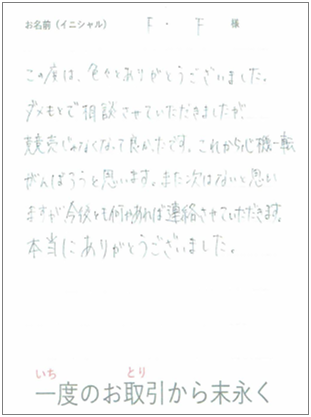 お名前(イニシャル) F・F 様
この度は、色々とありがとうございました。
ダメもとで相談させていただきましたが、
競売じゃなくなって良かったです。これから心機一転
がんばろうと思います。また次はないと思い
ますが今後とも何かあれば連絡させていただきます。
本当にありがとうございました。
いち とり
一度のお取引から末永く